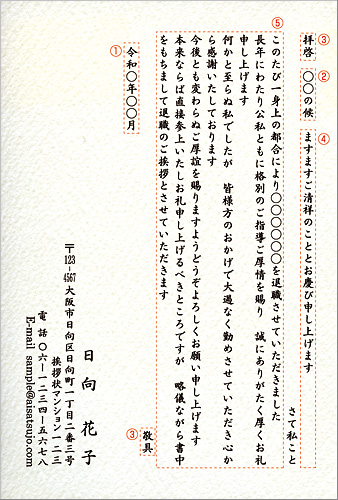 ⑤
③
拝啓
②
〇〇の候
④
ますますご清祥のこととお慶び申し上げます
さて私こと
このたび一身上の都合により〇〇〇〇〇を退職させていただきました
長年にわたり公私ともに格別のご指導ご厚情を賜り　誠にありがたく厚くお礼
申し上げます
何かと至らぬ私でしたが　皆様方のおかげで大過なく勤めさせていただき心か
ら感謝いたしております
今後とも変わらぬご厚誼を賜りますようどうぞよろしくお願い申し上げます
本来ならば直接参上いたしお礼申し上げるべきところですが　略儀ながら書中
をもちまして退職のご挨拶とさせていただきます
③
敬具
①
令和〇年〇〇月
日向　花子
〒123-4567大阪市日向区日向町一丁目二番三号
挨拶状マンション一二三
電話〇六ー一二三四ー五六七八
E-mail sample@aisatsujo.com